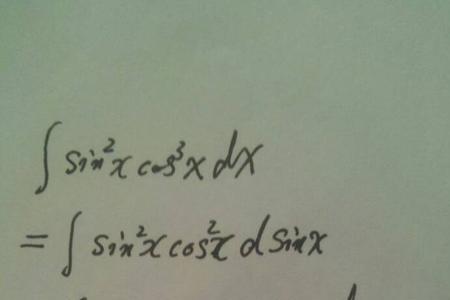 ∫ sin²x cos³x dx
= ∫ sin²x cos²x d sinx